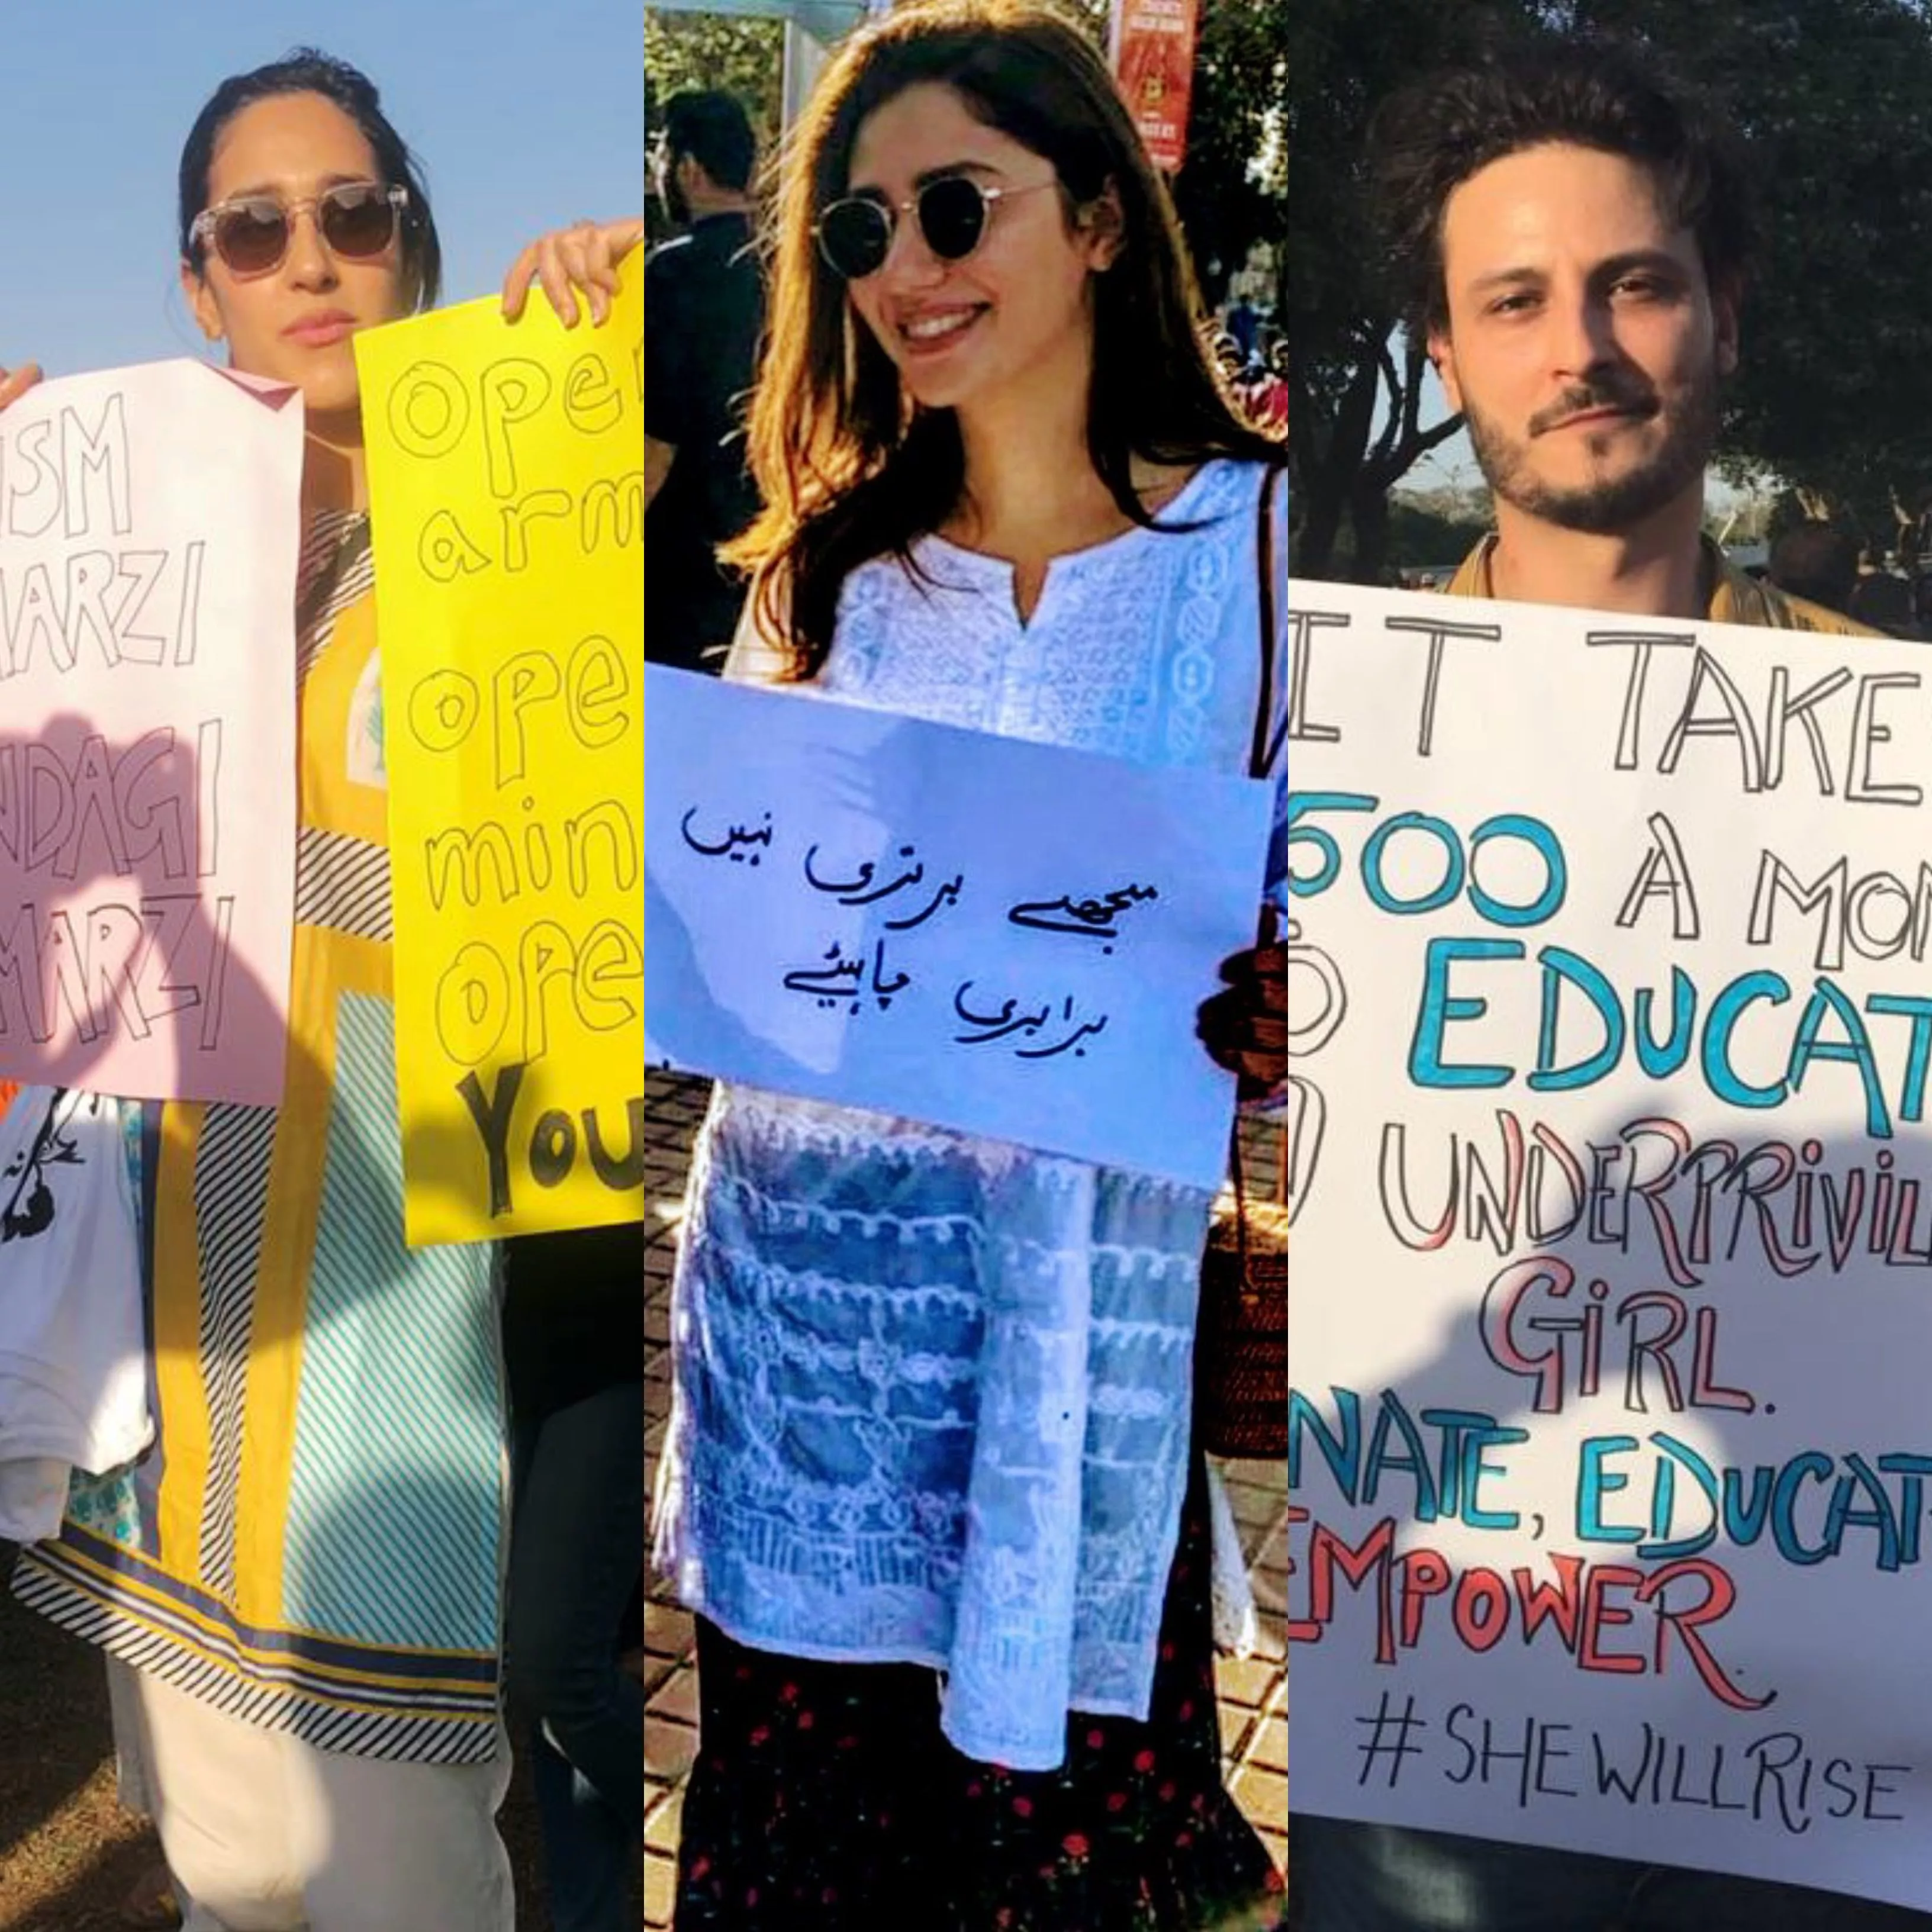 ISM
MARZI
NDAGI
MARZI
open
arm
ope
min
ope
You
مجھے برتری نہیں
برابری چاہیئے
IT TAKE
500 A MON
O EDUCAT
UNDERPRIVIL
GIRL.
NATE, EDUCAT
EMPOWER.
#SHEWILLRISE